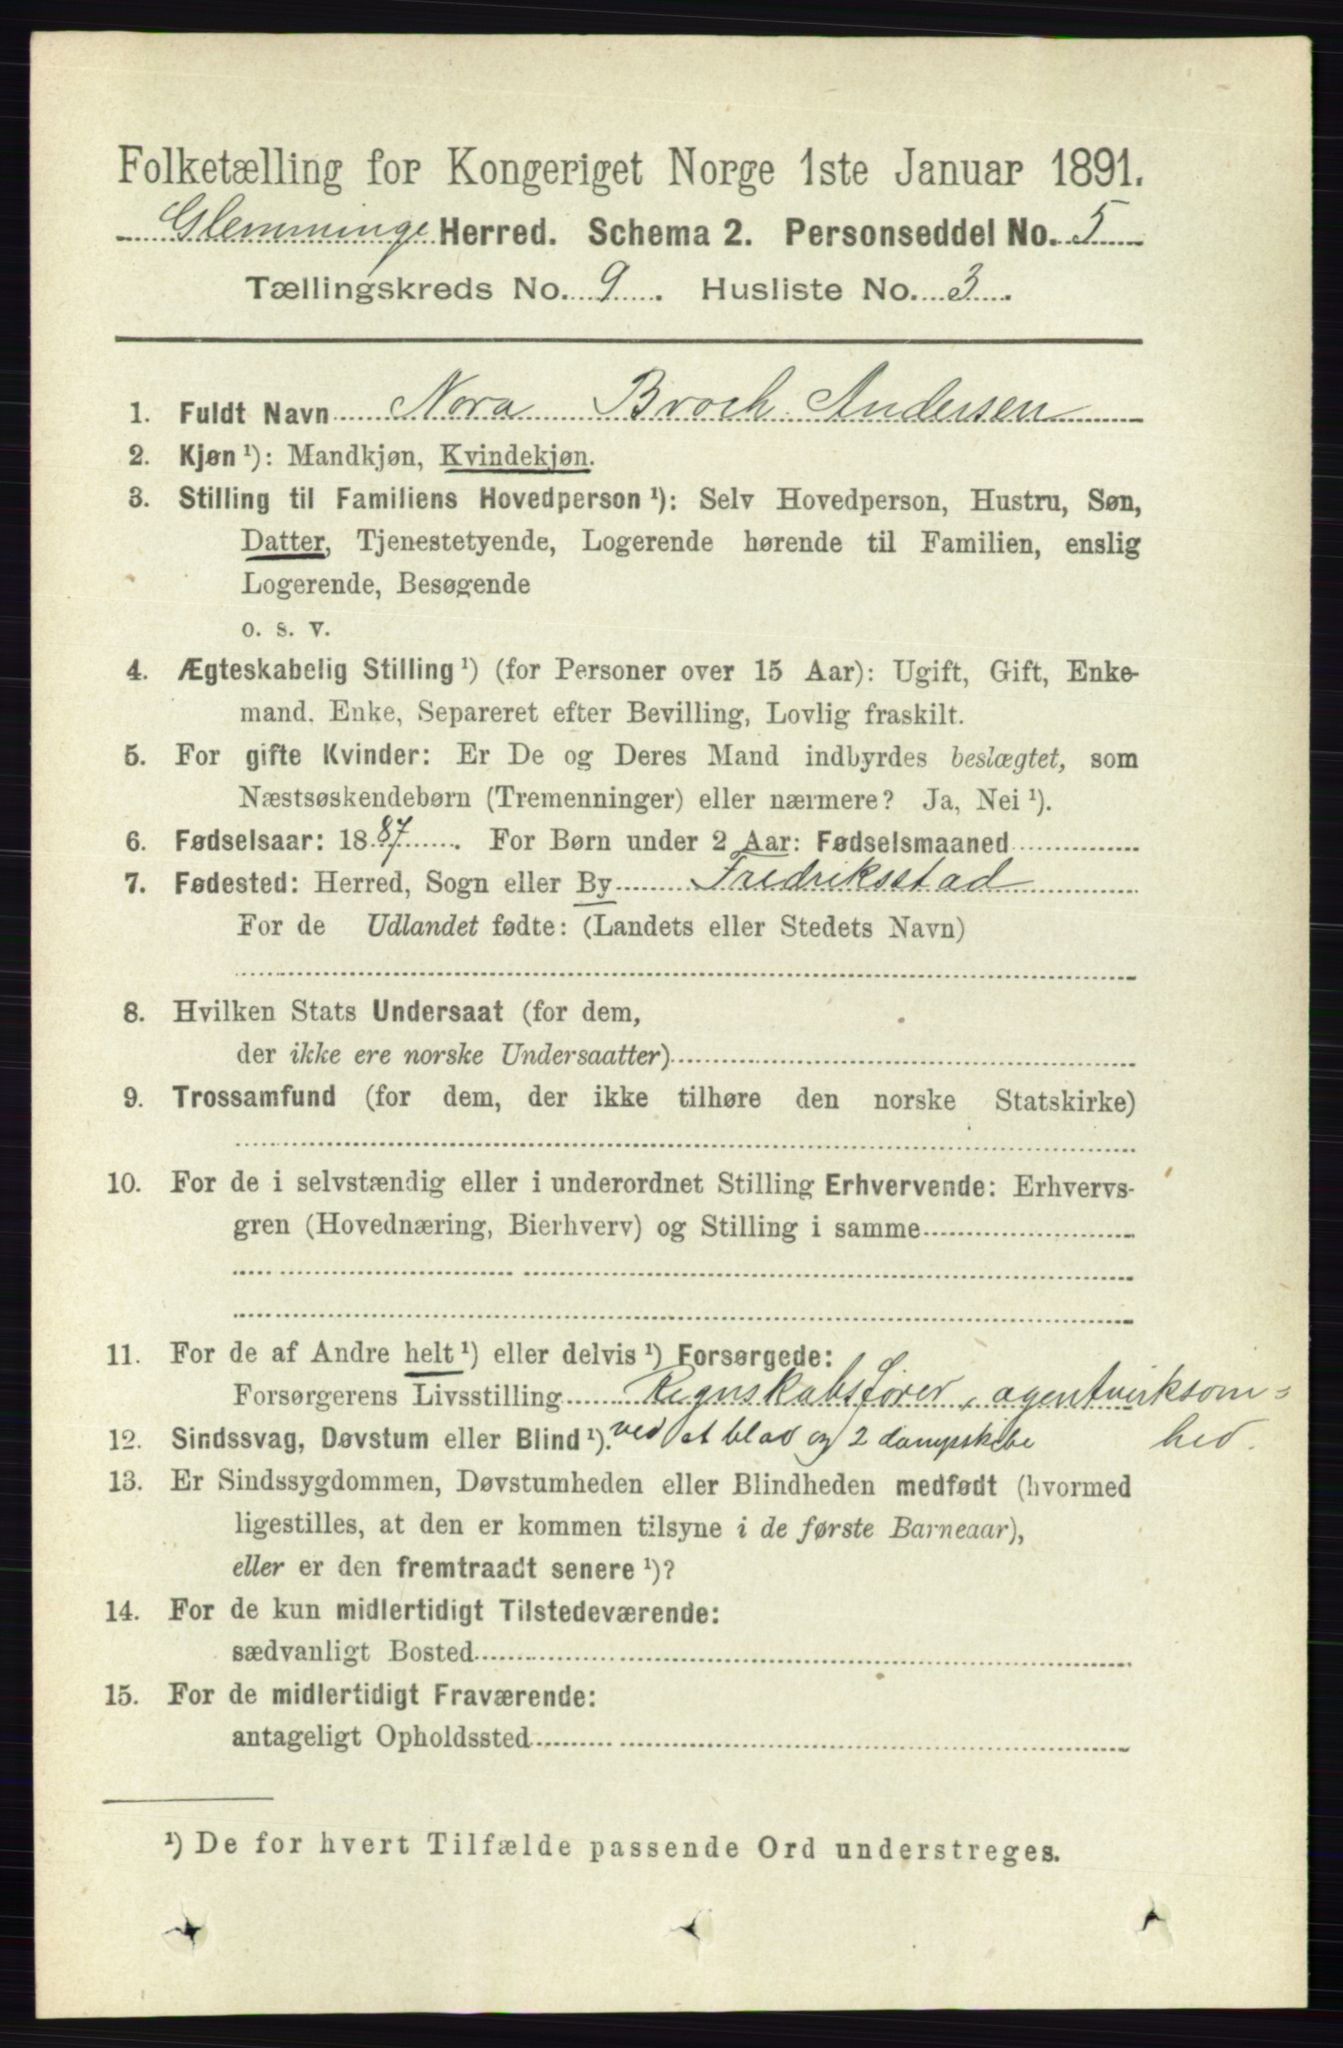 Folketælling for Kongeriget Norge 1ste Januar 1891.
Glemminge Herred. Schema 2. Personseddel No. 5
Tællingskreds No. 9. Husliste No. 3.
1. Fuldt Navn Nora Broch Andersen
2. Kjøn ¹): Mandkjøn, Kvindekjøn.
3. Stilling til Familiens Hovedperson ¹): Selv Hovedperson, Hustru, Søn,
Datter, Tjenestetyende, Logerende hørende til Familien, enslig
Logerende, Besøgende
o. s. v.
4. Ægteskabelig Stilling ¹) (for Personer over 15 Aar): Ugift, Gift, Enke-
mand. Enke, Separeret efter Bevilling, Lovlig fraskilt.
5. For gifte Kvinder: Er De og Deres Mand indbyrdes beslægtet, som
Næstsøskendebørn (Tremenninger) eller nærmere? Ja, Nei ¹).
6. Fødselsaar: 1887. For Børn under 2 Aar: Fødselsmaaned
7. Fødested: Herred, Sogn eller By Fredriksstad
For de Udlandet fødte: (Landets eller Stedets Navn)
8. Hvilken Stats Undersaat (for dem,
der ikke ere norske Undersaatter)
9. Trossamfund (for dem, der ikke tilhøre den norske Statskirke)
10. For de i selvstændig eller i underordnet Stilling Erhvervende: Erhvervs-
gren (Hovednæring, Bierhverv) og Stilling i samme
11. For de af Andre helt ¹) eller delvis ¹) Forsørgede:
Forsørgerens Livsstilling Regnskabsfører, agentvirksom=
12. Sindssvag, Døvstum eller Blind ¹). ved et blad og 2 dampskibe hed.
13. Er Sindssygdommen, Døvstumheden eller Blindheden medfødt (hvormed
ligestilles, at den er kommen tilsyne i de første Barneaar),
eller er den fremtraadt senere ¹)?
14. For de kun midlertidigt Tilstedeværende:
sædvanligt Bosted
15. For de midlertidigt Fraværende:
antageligt Opholdssted
¹) De for hvert Tilfælde passende Ord understreges.